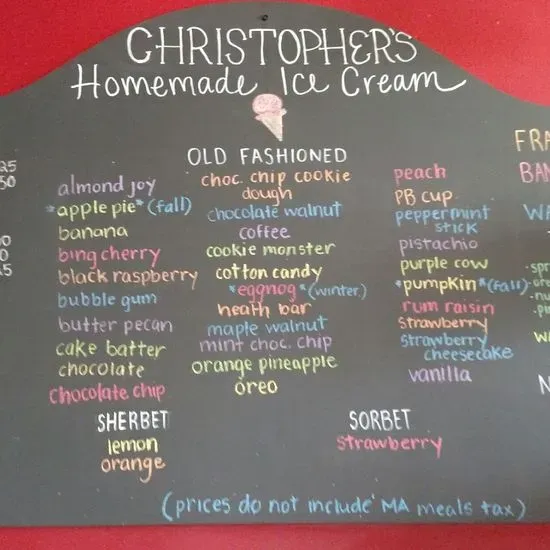 CHRISTOPHER'S
Homemade Ice Cream
OLD FASHIONED
almond joy
*apple pie* (fall)
banana
bing cherry
black raspberry
bubble gum
butter pecan
cake batter
chocolate
chocolate chip
choc. chip cookie
dough
chocolate walnut
coffee
cookie monster
cotton candy
*eggnog* (winter)
heath bar
maple walnut
mint choc. chip
orange pineapple
oreo
peach
PB cup
peppermint
stick
pistachio
purple cow
*pumpkin* (fall)
rum raisin
strawberry
strawberry
cheesecake
vanilla
SHERBET
lemon
orange
SORBET
strawberry
(prices do not include MA meals tax)
25
50
FRA
BAN